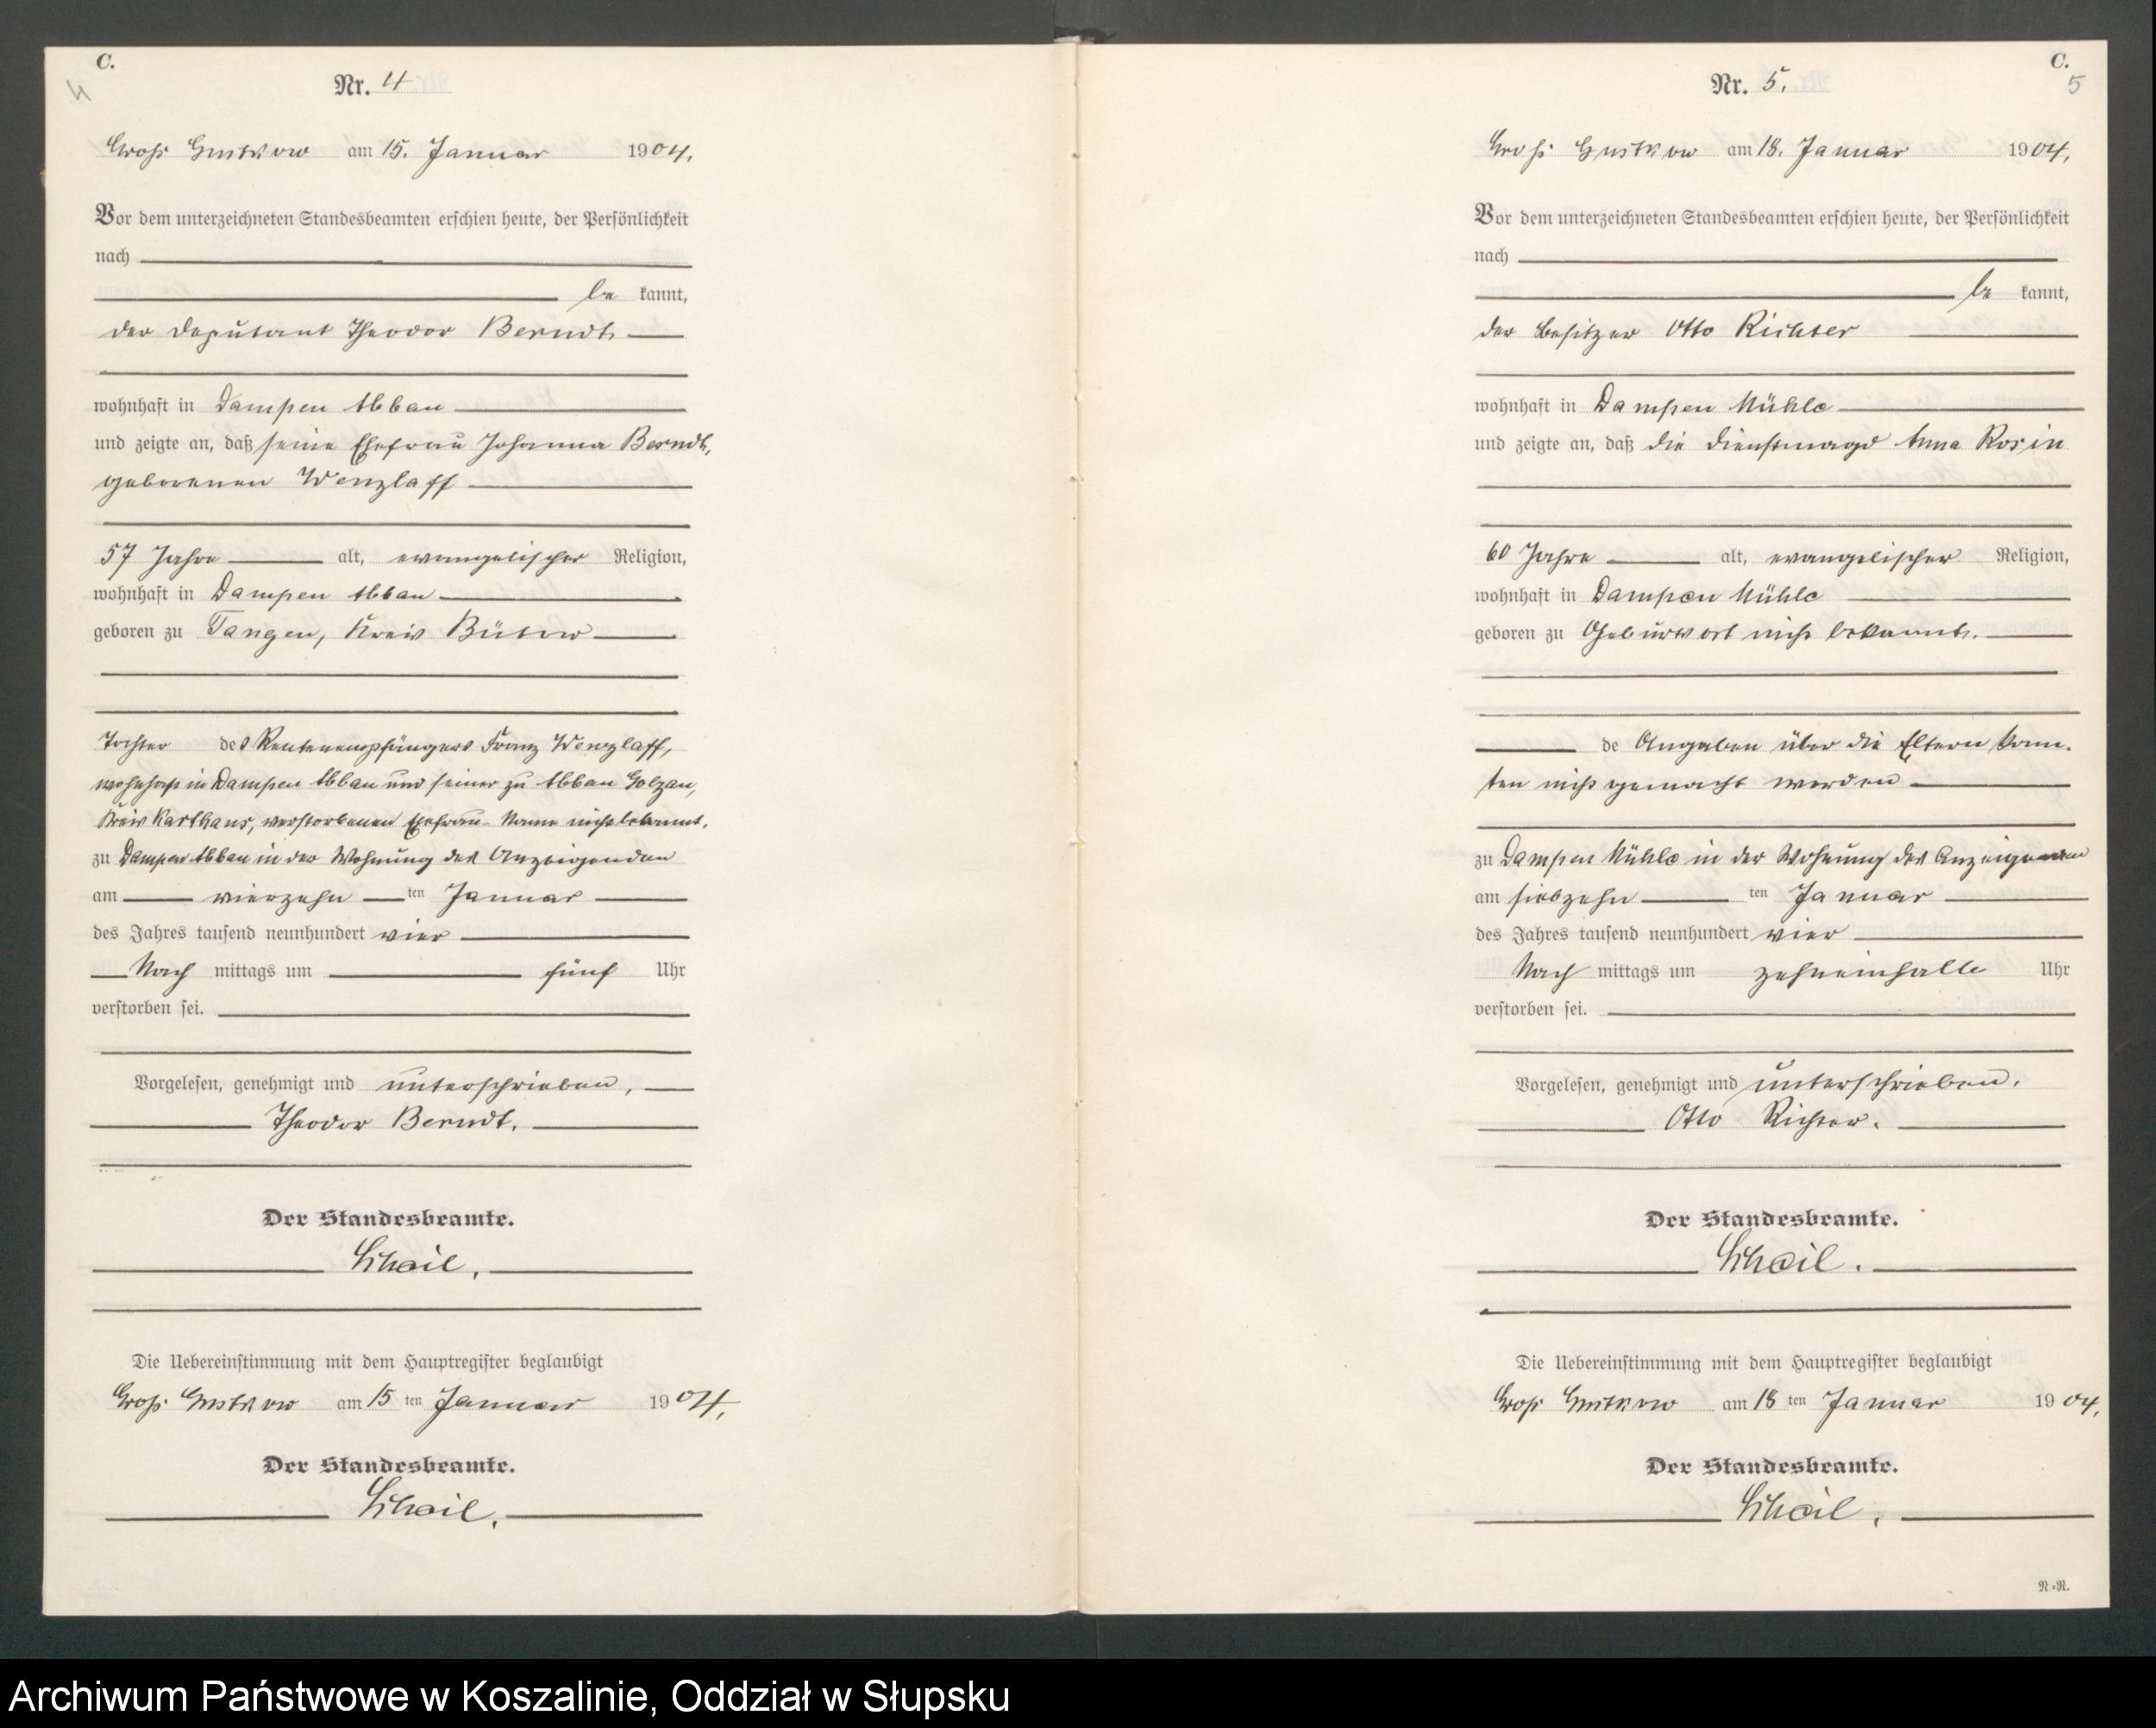 C.
4
Nr. 4
Groß Gustkow am 15. Januar 1904.
Vor dem unterzeichneten Standesbeamten erschien heute, der Persönlichkeit
nach
be kannt,
der Deputant Theodor Berndt
wohnhaft in Dampen Abbau
und zeigte an, daß seine Ehefrau Johanna Berndt,
geborenen Wenzlaff
57 Jahre alt, evangelischer Religion,
wohnhaft in Dampen Abbau
geboren zu Tangen, Kreis Bütow
Tochter des Rentenempfängers Franz Wenzlaff,
wohnhaft in Dampen Abbau und seiner zu Abbau Golzau,
Kreis Karthaus, verstorbenen Ehefrau Name nicht bekannt.
zu Dampen Abbau in der Wohnung des Anzeigenden
am vierzehn ten Januar
des Jahres tausend neunhundert vier
Nach mittags um fünf Uhr
verstorben sei.
Vorgelesen, genehmigt und unterschrieben,
Theodor Berndt.
Der Standesbeamte.
Die Uebereinstimmung mit dem Hauptregister beglaubigt
Groß Gustkow am 15 ten Januar 1904.
Der Standesbeamte.
C.
5
Nr. 5.
Groß Gustkow am 18. Januar 1904.
Vor dem unterzeichneten Standesbeamten erschien heute, der Persönlichkeit
nach
be kannt,
der Besitzer Otto Richter
wohnhaft in Dampen Mühle
und zeigte an, daß die Dienstmagd Anna Rosin
60 Jahre alt, evangelischer Religion,
wohnhaft in Dampen Mühle
geboren zu Geburtsort nicht bekannt.
de Angaben über die Eltern konn-
ten nicht gemacht werden
zu Dampen Mühle in der Wohnung des Anzeigenden
am siebzehn ten Januar
des Jahres tausend neunhundert vier
Nach mittags um zehneinhalb Uhr
verstorben sei.
Vorgelesen, genehmigt und unterschrieben.
Otto Richter.
Der Standesbeamte.
Die Uebereinstimmung mit dem Hauptregister beglaubigt
Groß Gustkow am 18 ten Januar 1904.
Der Standesbeamte.
N.-R.
Archiwum Państwowe w Koszalinie, Oddział w Słupsku